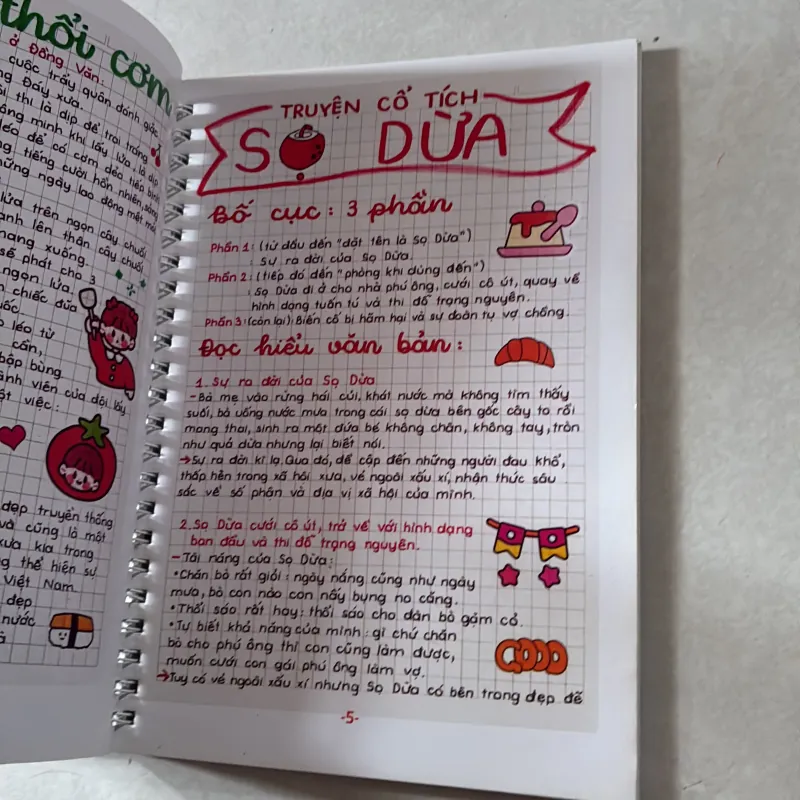 thổi cơm
ở Đồng Vân:
cuộc trẩy quân đánh giặc
Đáy xưa.
thi là dịp để trai tráng
minh khi lấy lửa, là dịp
léo để có cơm dẻo tiếp binh
tiếng cười hồn nhiên, sảng
những ngày lao động mệt mỏi
lửa trên ngọn cây chuối
lên thân cây chuối
mang xuống.
sẽ phát cho 3
ngọn lửa.
chiếc đũa
léo từ
cần,
bập bùng
viên của đội lấy
việc:
đẹp truyền thống
và cũng là một
xưa kia trong
thể hiện sự
Việt Nam.
đẹp
nước
TRUYỆN CỔ TÍCH
SỌ DỪA
Bố cục: 3 phần
Phần 1: (từ đầu đến "đặt tên là Sọ Dừa")
: Sự ra đời của Sọ Dừa.
Phần 2: (tiếp đó đến "phòng khi dùng đến")
: Sọ Dừa đi ở cho nhà phú ông, cưới cô út, quay về
hình dạng tuấn tú và thi đỗ trạng nguyên.
Phần 3: (còn lại): Biến cố bị hãm hại và sự đoàn tụ vợ chồng.
Đọc hiểu văn bản:
1. Sự ra đời của Sọ Dừa
- Bà mẹ vào rừng hái củi, khát nước mà không tìm thấy
suối, bà uống nước mưa trong cái sọ dừa bên gốc cây to rồi
mang thai, sinh ra một đứa bé không chân, không tay, tròn
như quả dừa nhưng lại biết nói.
→ Sự ra đời kì lạ. Qua đó, đề cập đến những người đau khổ,
thấp hèn trong xã hội xưa, vẻ ngoài xấu xí, nhận thức sâu
sắc về số phận và địa vị xã hội của mình.
2. Sọ Dừa cưới cô út, trở về với hình dạng
ban đầu và thi đỗ trạng nguyên.
- Tài năng của Sọ Dừa:
• Chăn bò rất giỏi: ngày nắng cũng như ngày
mưa, bò con nào con nấy bụng no căng.
• Thổi sáo rất hay: thổi sáo cho đàn bò gặm cỏ.
• Tự biết khả năng của mình: gì chứ chăn
bò cho phú ông thì con cũng làm được,
muốn cưới con gái phú ông làm vợ.
→ Tuy có vẻ ngoài xấu xí nhưng Sọ Dừa có bên trong đẹp đẽ
-5-